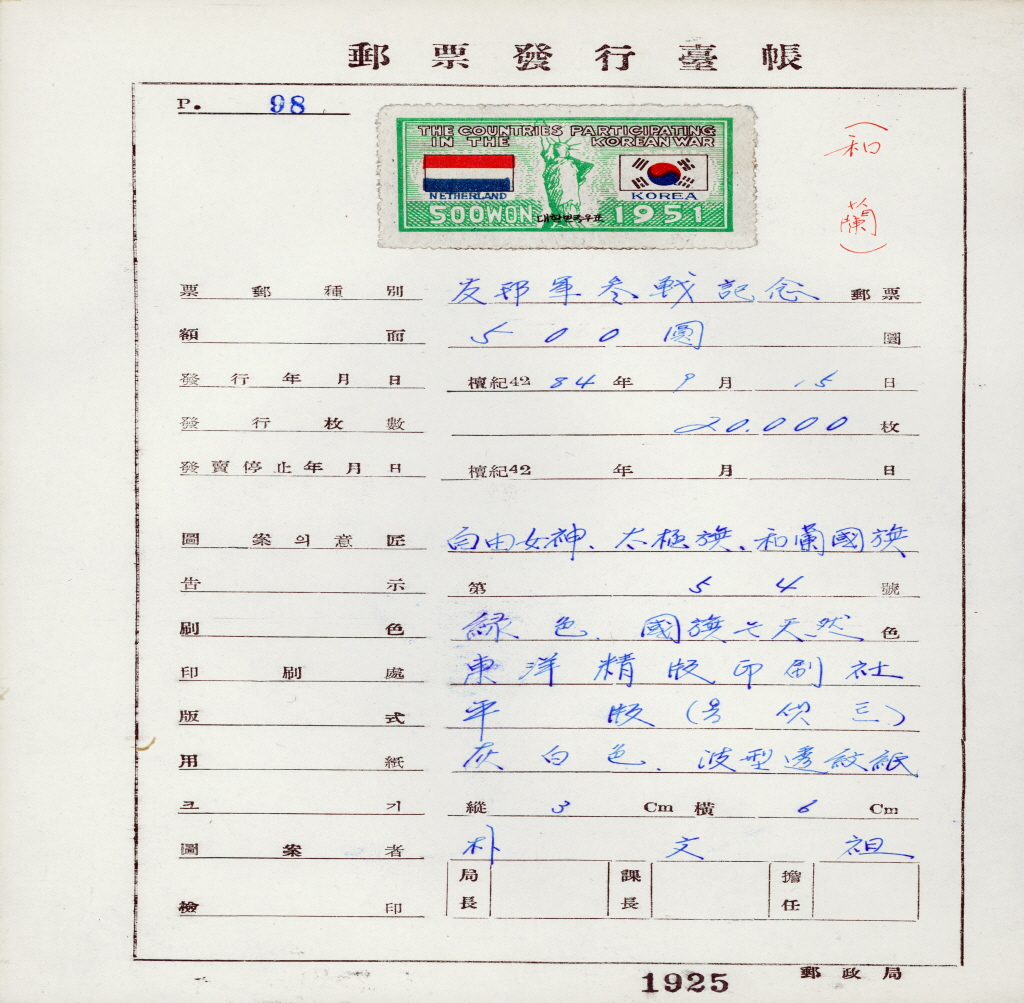 郵票發行臺帳
P. 98
THE COUNTRIES PARTICIPATING
IN THE KOREAN WAR
NETHERLAND KOREA
500WON 대한민국우표 1951
(和蘭)
票郵種別 友邦軍参戦記念 郵票
額面 500圓 圜
發行年月日 檀紀42 84 年 9 月 15 日
發行枚數 20.000 枚
發賣停止年月日 檀紀42 年 月 日
圖案의意匠 自由女神、太極旗、和蘭國旗
告示 第 54 號
刷色 緑色. 國旗는天然 色
印刷處 東洋精版印刷社
版式 平版(옵셋트)
用紙 灰白色. 波型透紋紙
크기 縱 3 Cm 橫 6 Cm
圖案者 朴文祖
檢印 局長 課長 擔任
1925 郵政局